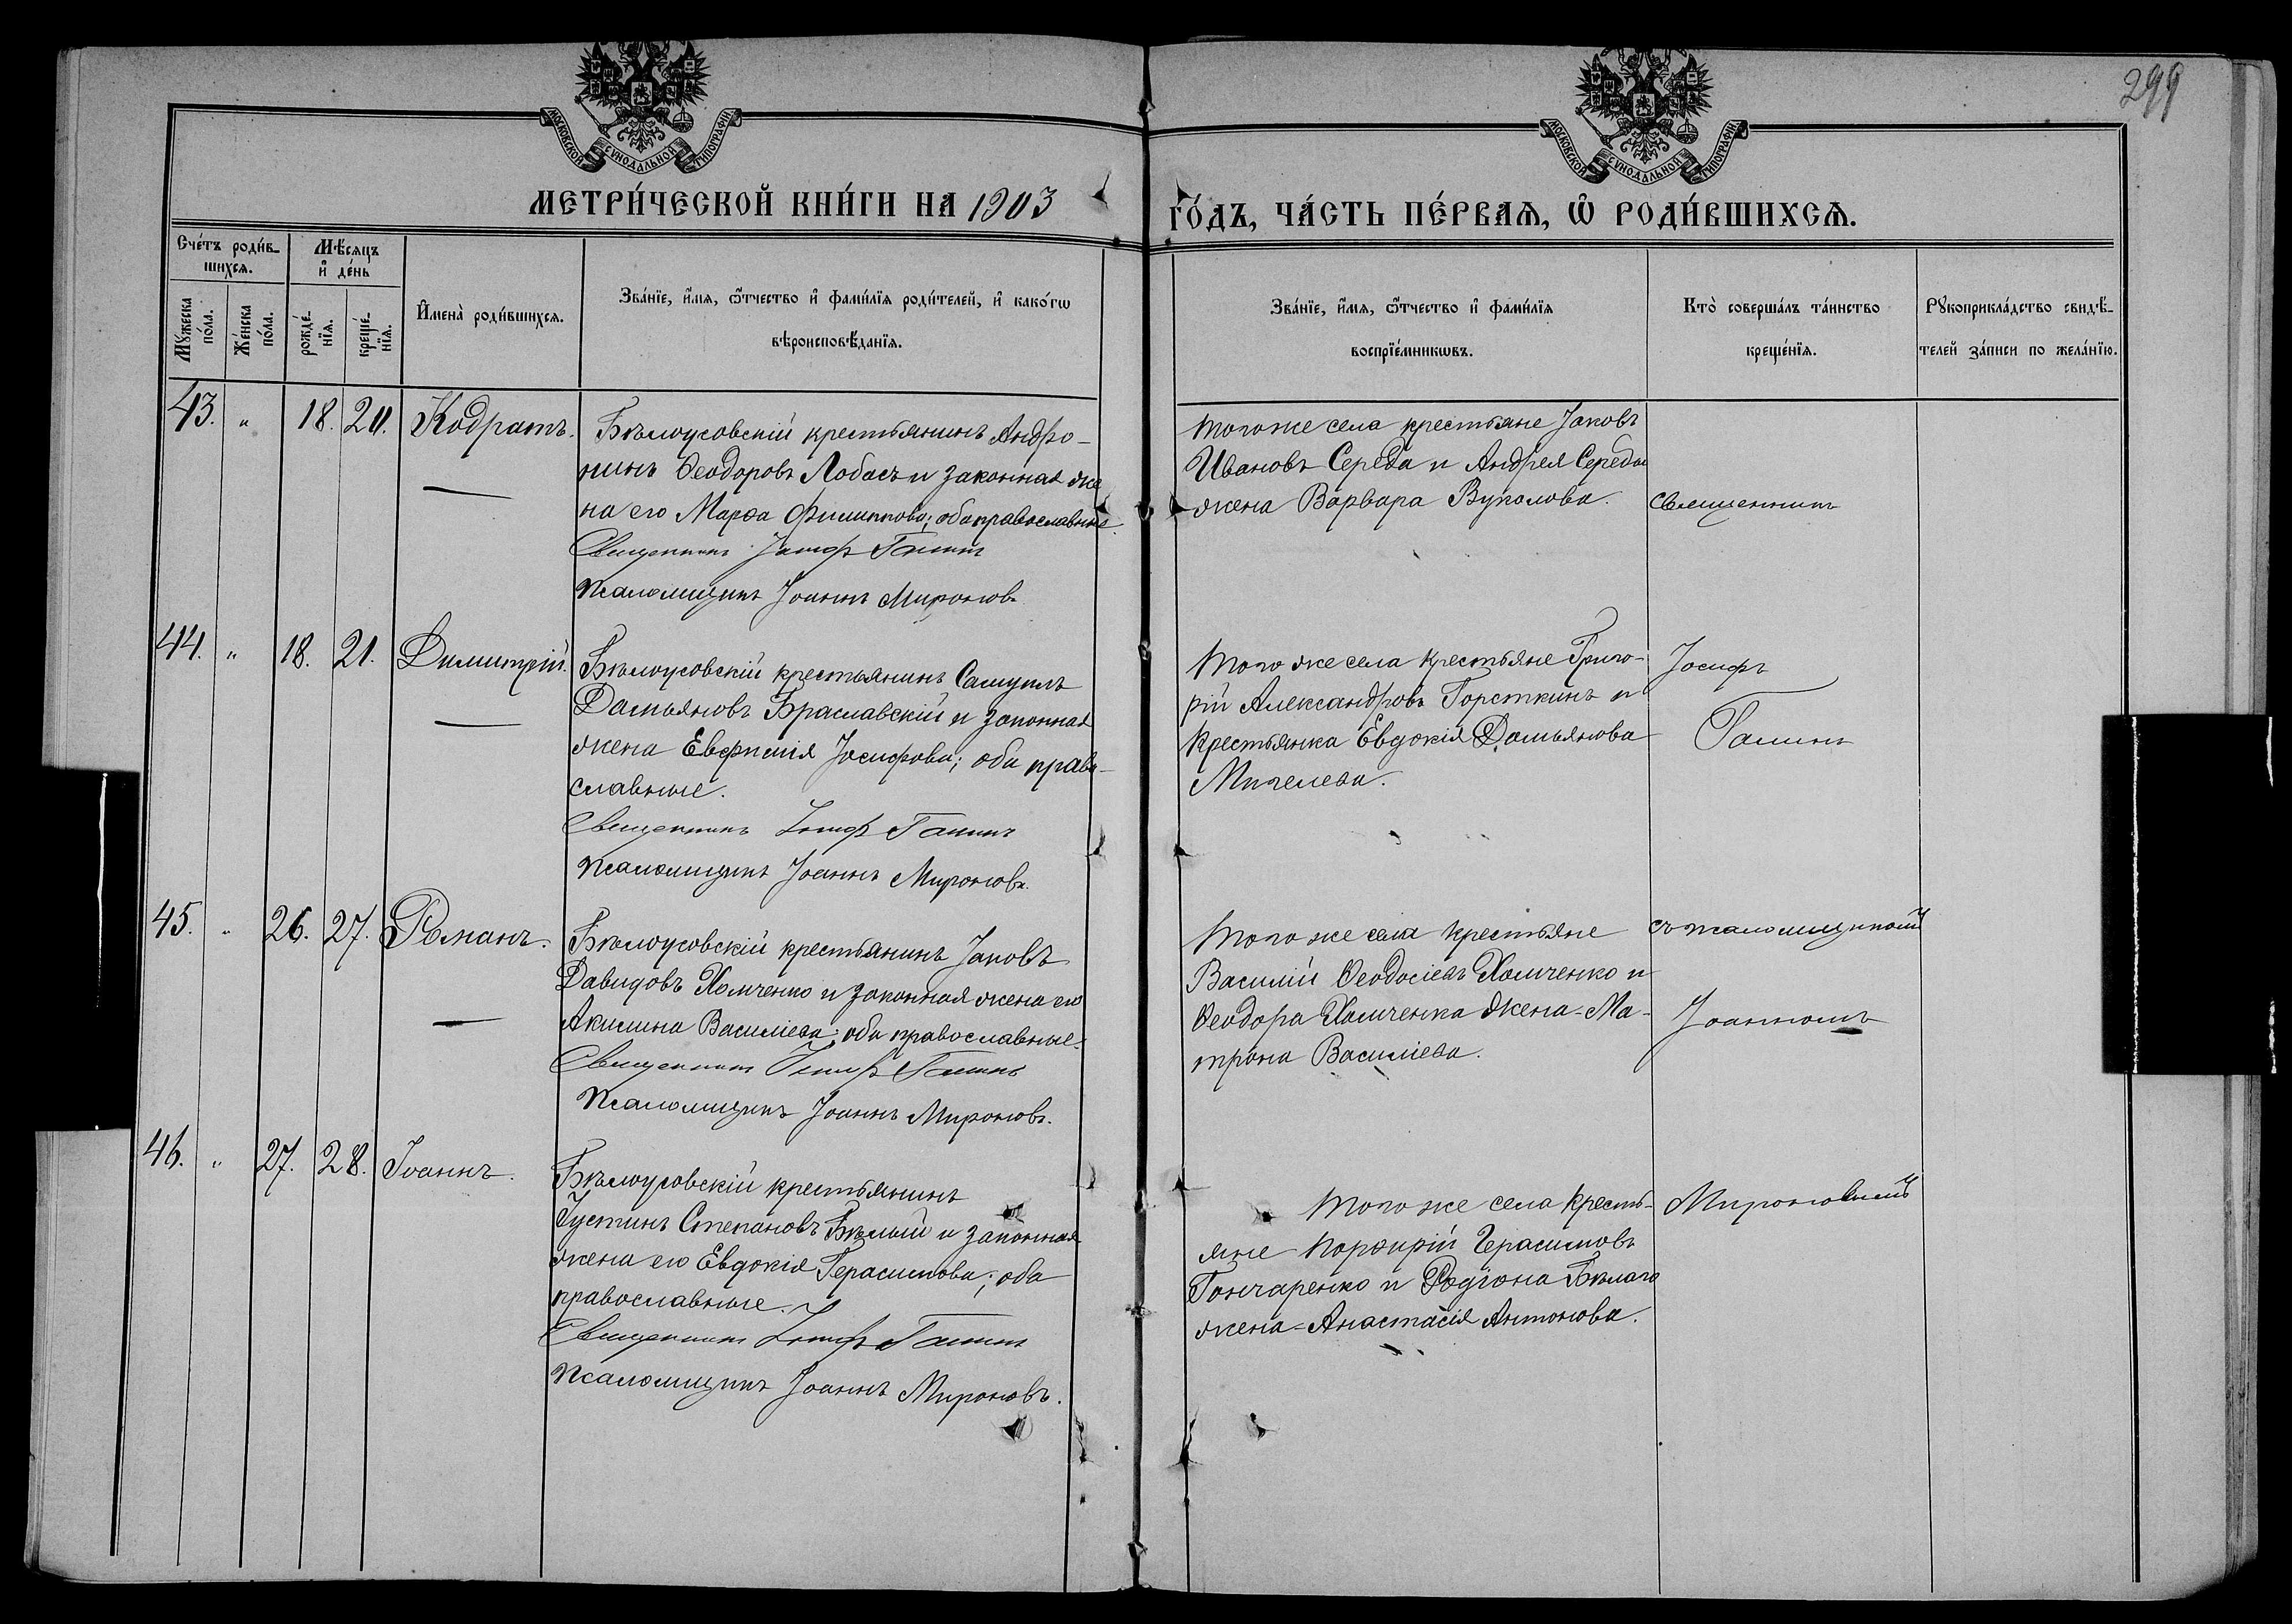 299
МОСКОВСКОЙ СѴНОДАЛЬНОЙ ТИПОГРАФІИ
МОСКОВСКОЙ СѴНОДАЛЬНОЙ ТИПОГРАФІИ
МЕТРИ́ЧЕСКОЙ КНИ́ГИ НА 1903
ГО́ДЪ, ЧА́СТЬ ПЕ́РВАЯ, Ѡ РОДИ́ВШИХСѦ.
Сче́тъ роди́в-
шихсѧ.
Мꙋжеска
по́ла.
Же́нска
по́ла.
Мѣ́сяцъ
и҆ де́нь
рожде́-
нїѧ.
креще́-
нїѧ.
И҆мена̀ роди́вшихсѧ.
Зва́нїе, и҆́мѧ, ѻ҆́тчество и҆ фами́лїѧ роди́телей, и҆ како́гѡ
вѣроисповѣ́данїѧ.
Зва́нїе, и҆́мѧ, ѻ҆́тчество и҆ фами́лїѧ
воспрїе́мникѡвъ.
Кто̀ соверша́лъ та́инство
креще́нїѧ.
Рꙋкоприкла́дство свидѣ́-
телей за́писи по жела́нїю.
43. " 18. 20. Кодратъ.
Бѣлоусовскій крестьянинъ Андро-
никъ Ѳеодоровъ Лобасъ и законная же
на его Марѳа Филиппова; оба православные.
Священникъ Іосифъ Галинъ
Псаломщикъ Іоаннъ Мироновъ
Того же села крестьяне Іаковъ
Ивановъ Середа и Андрея Середы
жена Варвара Вуколова.
Священникъ
44. " 18. 21. Димитрій.
Бѣлоусовскій крестьянинъ Самуилъ
Дамьяновъ Браславскій и законная
жена Евфимія Іосифова; оба право-
славные.
Священникъ Іосифъ Галинъ
Псаломщикъ Іоаннъ Мироновъ.
Того же села крестьяне Григо-
рій Александровъ Горсткинъ и
крестьянка Евдокія Дамьянова
Мигелева.
Іосифъ
Галинъ
45. " 26. 27. Романъ.
Бѣлоусовскій крестьянинъ Іаковъ
Давидовъ Хомченко и законная жена его
Акилина Василіева; оба православные.
Священникъ Іосифъ Галинъ
Псаломщикъ Іоаннъ Мироновъ.
Того же села крестьяне
Василій Ѳеодосіевъ Хомченко и
Ѳеодора Хомченка жена=Ма-
трона Василіева.
съ псаломщикомъ
Іоанномъ
46. " 27. 28. Іоаннъ.
Бѣлоусовскій крестьянинъ
Іустинъ Степановъ Бѣлый и законная
жена его Евдокія Герасимова; оба
православные.
Священникъ Іосифъ Галинъ
Псаломщикъ Іоаннъ Мироновъ.
Того же села кресть-
яне Порфирій Герасимовъ
Гончаренко и Родіона Бѣлаго
жена=Анастасія Антонова.
Мироновымъ